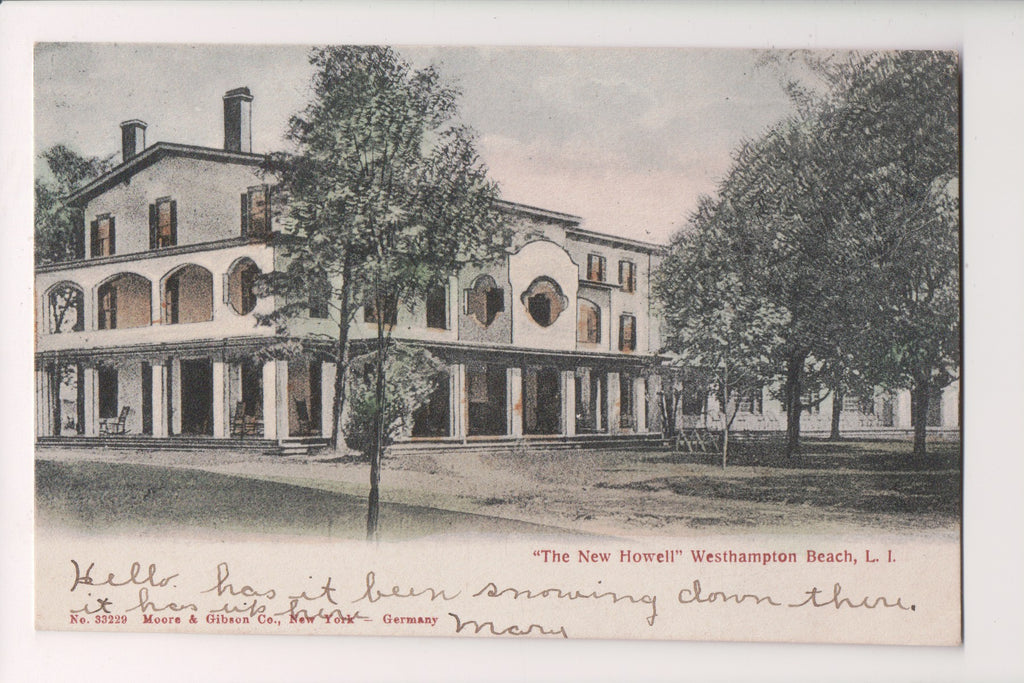 "The New Howell" Westhampton Beach, L. I.
Hello. has it been snowing down there.
it has up here
No. 33229 Moore & Gibson Co., New York - Germany
Mary